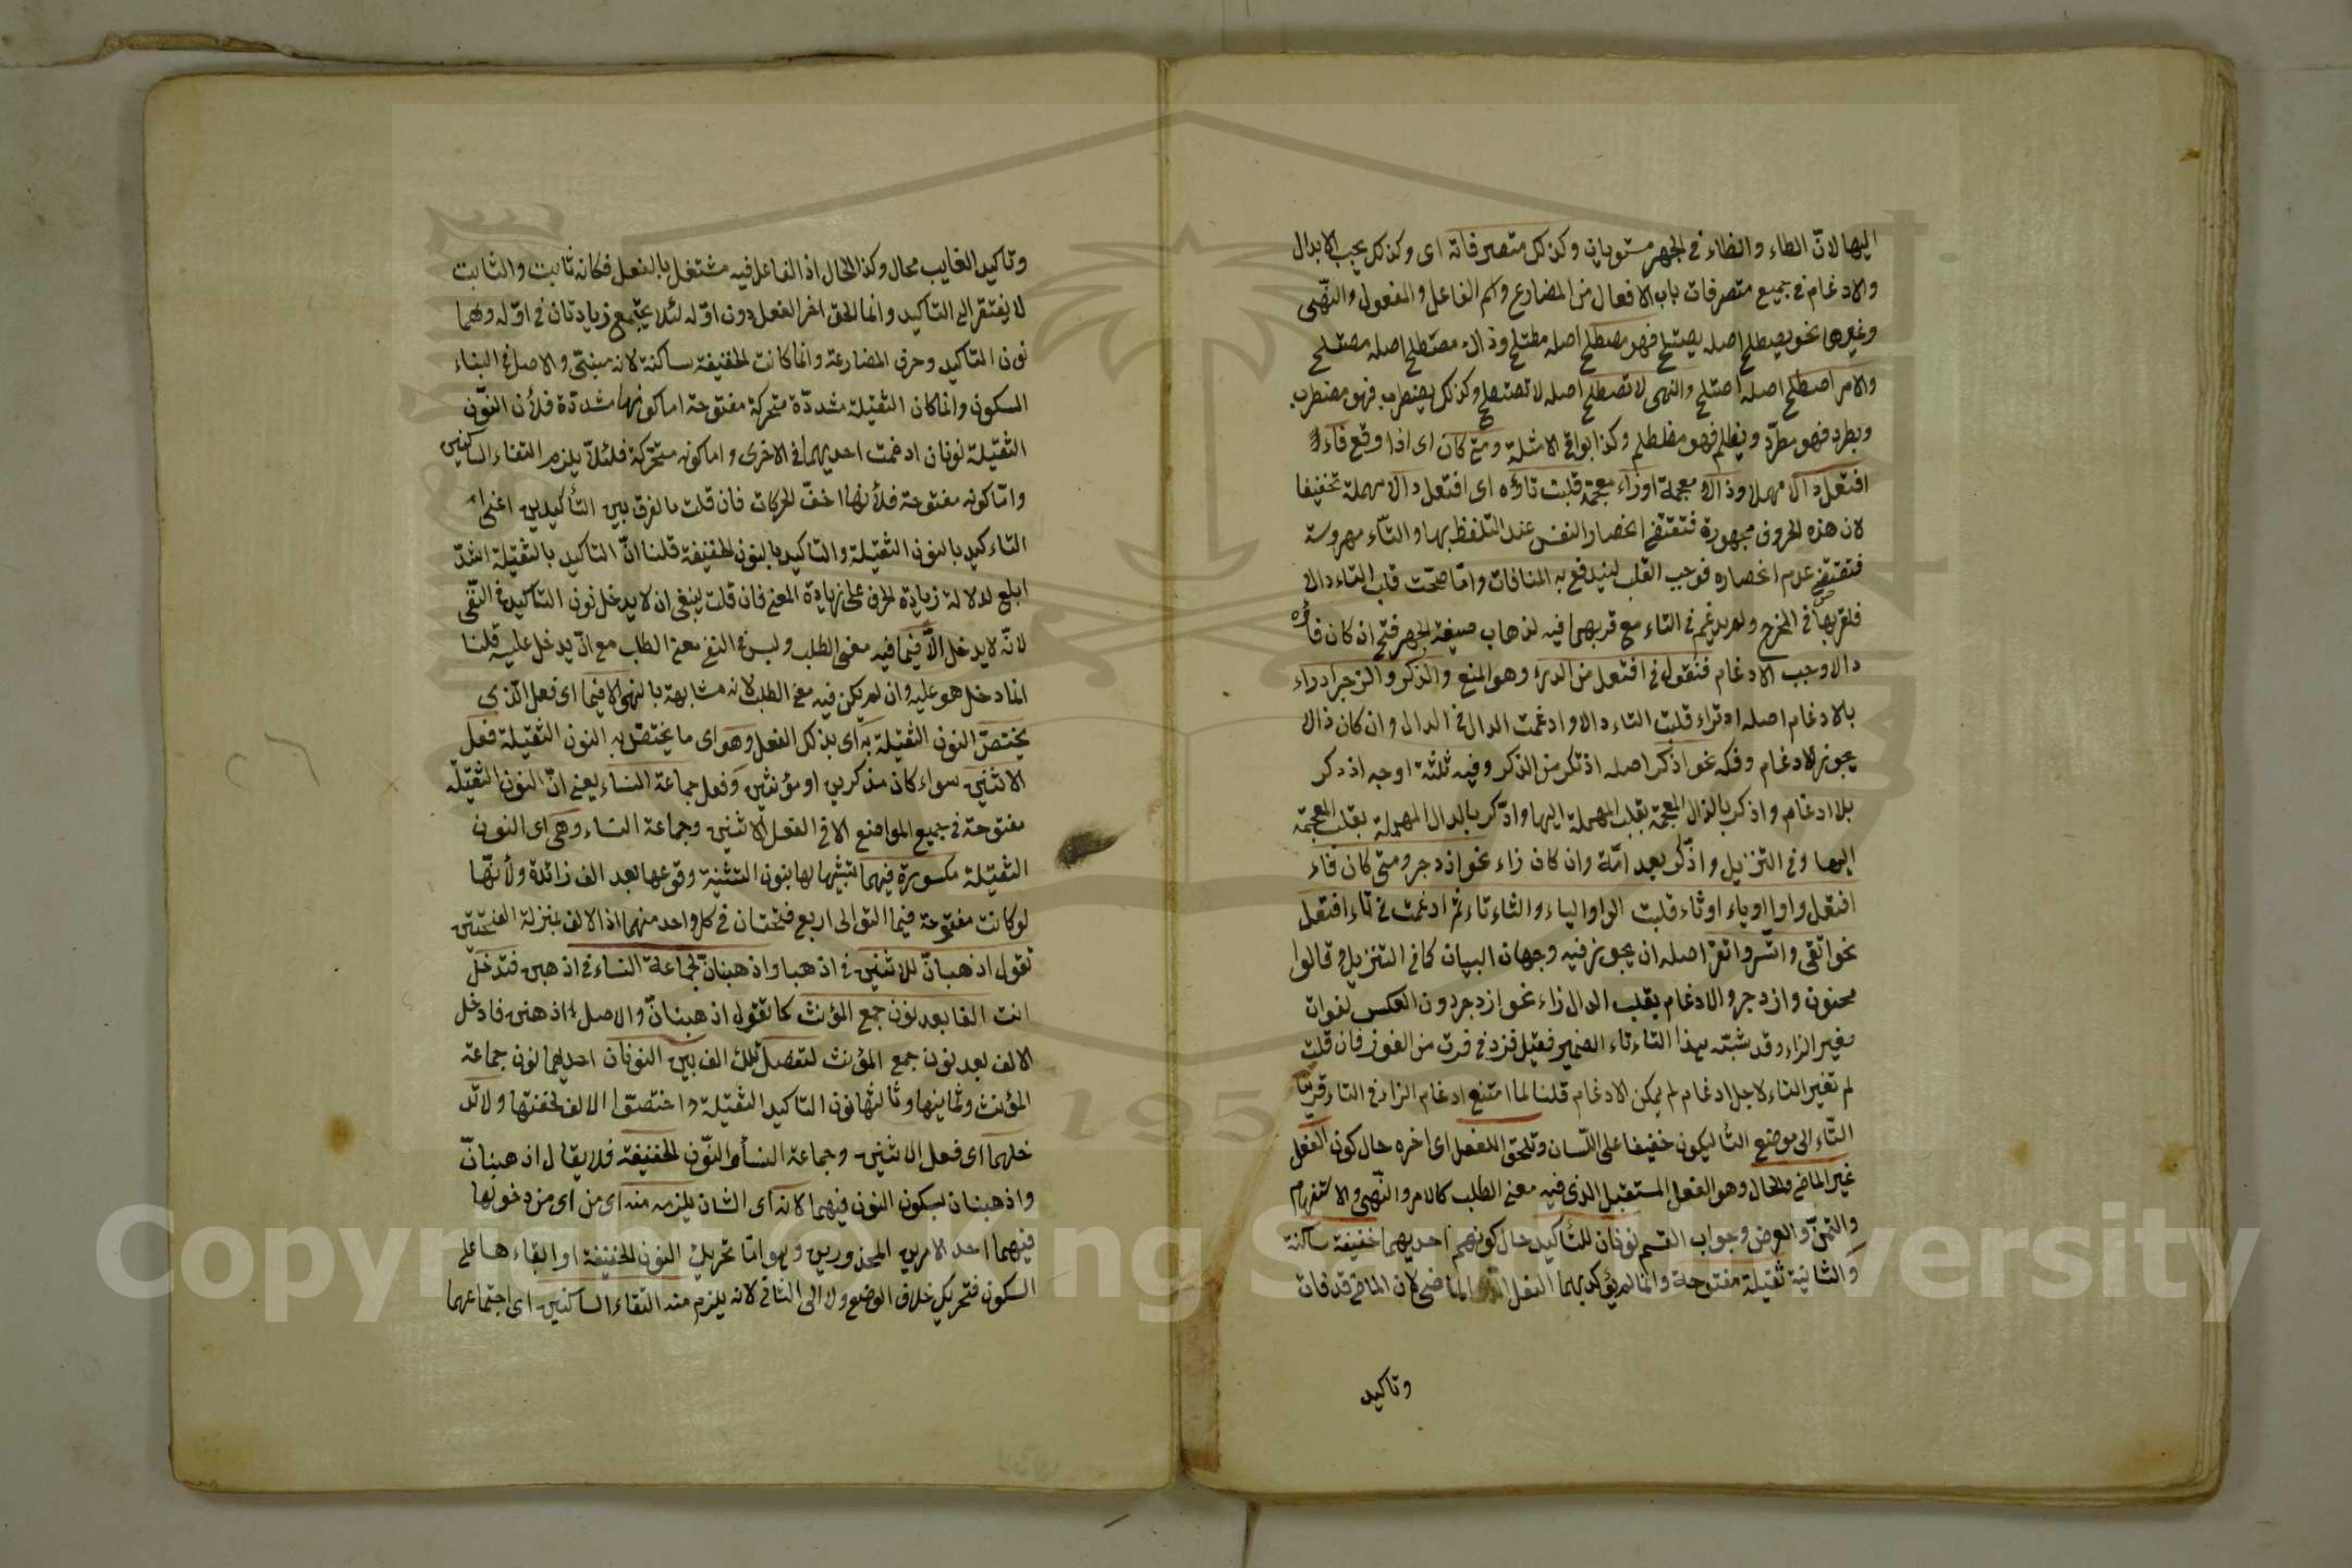 اليها لانّ الطاء والظاء في الجهر مستويان وكذلك متصرفاته اى وكذلك يجب الابدال
والادغام في جميع متصرفات باب الافعال من المضارع واسم الفاعل والمفعول والنّهى
وغيرها نحو يصطلح اصله يصتلح فهو مصطلح اصله مصتلح وذاك مصطلح اصله مصتلح
والامر اصطلح اصله اصتلح والنهى لا تصطلح اصله لا تصتلح وكذلك يضطرب فهو مضطرب
ويطرد فهو مطرّد ويظلم فهو مظطلم وكذا بواقي الامثلة ومتى كان اى اذا وقع فاء
افتعل دالا مهملا وذالا معجمة اوزاء معجمة قلبت تاؤه اى افتعل دالا مهملة تخفيفا
لان هذه الحروف مجهورة فتقتضى انحصار النفس عند التلفظ بها والتاء مهموسة
فتقتضى عدم انحصاره فوجب القلب ليندفع به المنافات وامّا صحّت قلب التاء دالا
فلقربها في المخرج ولم يدغم في التاء مع قربهما فيه لذهاب صيغة الجهر فتح ان كان فاؤه
دالا وجب الادغام فتقول في افتعل من الدرء وهو المنع والذكر والزجر ادراء
بالادغام اصله ادتراء قلبت التاء دالا وادغمت الدال في الدال وان كان ذالا
يجوز الادغام وفكه نحو اذكر اصله اذتكر من الذكر وفيه ثلثة اوجه اذدكر
بلا ادغام واذكر بالذال المعجمة بقلب المهملة اليها وادّكر بالدال المهملة بقلب المعجمة
اليها وفي التنزيل وادّكر بعد امّة وان كان زاء نحو ازدجر ومتى كان فاء
افتعل واوا اوياء اوثاء قلبت الواو والياء والثاء تاء ثم ادغمت في تاء افتعل
نحو اتّقى واتّسر واتّغر اصله ان يجوز فيه وجهان البيان كما في التنزيل وقالوا
مجنون وازدجر والادغام بقلب الدال زاء نحو ازدجر دون العكس لفوات
صفير الزاء وقد شبّه بهذا التاء تاء الضمير فقيل فزد في فزت من الفوز فان قلت
لم تغير التاء لاجل ادغام لم يمكن الادغام قلنا لما امتنع ادغام الزاء في التاء قربنا
التّاء الى موضع الزاء ليكون خفيفا على اللّسان وتلحق الفعل اى اخره حال كون الفعل
غير الماضى والحال وهو الفعل المستقبل الذى فيه معنى الطلب كالامر والنّهى والاستفهام
والتمنّى والعرض وجواب القسم نونان للتأكيد حال كونهما احديهما خفيفة ساكنة
والثانية ثقيلة مفتوحة وانما لم يؤكد بهما الفعل الماضى لان الماضى قد فات
وتاكيد
وتاكيد الغايب محال وكذا الحال اذ الفاعل فيه مشتغل بالفعل فكانه ثابت والثابت
لا يفتقر الى التاكيد وانما لحق اخر الفعل دون اوله لئلا يجتمع زيادتان في اوّله وهما
نون التاكيد وحرف المضارعة وانما كانت الخفيفة ساكنة لانه مبنىّ والاصل في البناء
السكون وانما كان الثقيلة مشددّة متحركة مفتوحة اما كونها مشددّة فلأن النوّن
الثقيلة نونان ادغمت احديهما في الاخرى واما كونه متحرّكة فلئلاّ يلزم التقاء الساكنين
وامّا كونه مفتوحة فلأنها اخفّ الحركات فان قلت ما الفرق بين التأكيدين اعنى
التاءكيد بالنون الثقيلة والتاكيد بالنون الخفيفة قلنا انّ التاكيد بالثقيلة اشدّ
ابلغ لدلالة زيادة الحرف على زيادة المعنى فان قلت ينبغى ان لا يدخل نون التاكيد في النّفى
لانّه لا يدخل الاّ فيما فيه معنى الطلب وليس في النفى معنى الطلب مع انّه يدخل عليه قلنا
انما دخل هو عليه وان لم يكن فيه معنى الطلب لانه مشابهة بالنهى الا فيما اى فعل الّذى
يختصّ النون الثقيلة به اى بذلك الفعل وهو اى ما يختصّ به النون الثقيلة فعل
الاثنين سواء كان مذكرين او مؤنثين وفعل جماعة النساء يعنى انّ النون الثقيلة
مفتوحة في جميع المواضع الا في الفعل الاثنين وجماعة النساء وهى اى النون
الثقيلة مكسورة فيهما لشبهها لها بنون التثنية وقوعها بعد الف زائدة ولأنّها
لو كانت مفتوحة فيما التوالى اربع فتحتان في كل واحد منهما اذ الالف بمنزلة الفتحتين
تقول اذهبانّ للاثنين في اذهبا واذهبنانّ لجماعة النساء في اذهبن فتدخل
انت الفا بعد نون جمع المؤنث كما تقول اذهبنانّ والاصل اذهبنن فادخل
الالف بعد نون جمع المؤنث لتفصل تلك الف بين النونان احديهما نون جماعة
المؤنث وثانيها وثالثها نون التاكيد الثقيلة واختصّوا الالف لخفتها ولا تد
خلهما اى فعل الاثنين وجماعة النسأ النّون الخفيفة فلا يقال اذهبانّ
واذهبنان بسكون النون فيهما لانه اى الشان يلزمه منه اى من اى من دخولها
فيهما احد الامرين المحذورين وهو امّا تحريك النون الخفيفة او ابقاءها على
السكون فتحريك خلاف الوضع ولا الى الثانى لانه يلزم منه التقاء الساكنين اى اجتماعهما
Copyright © King Saud University
1957